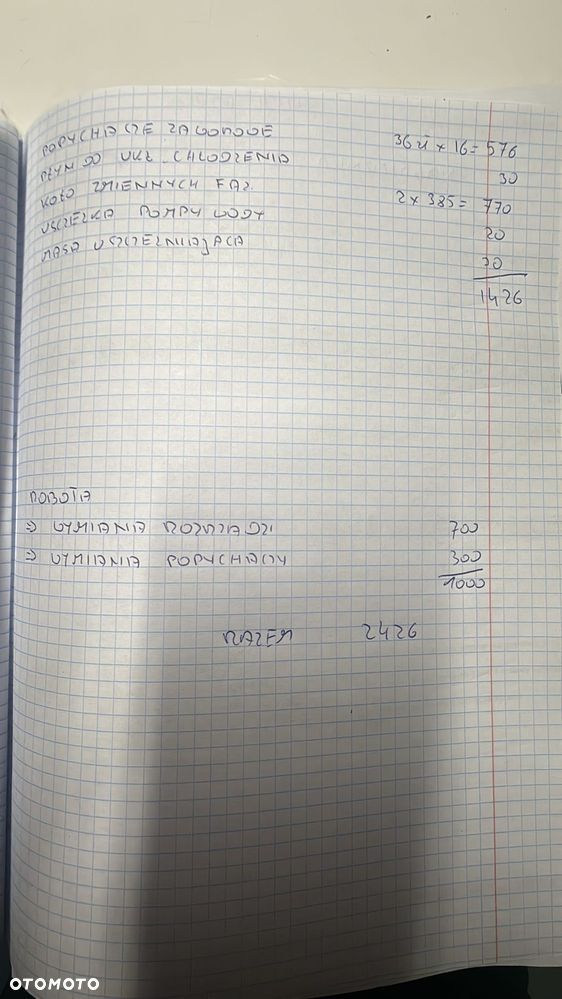 POPYCHACZE ZAWOROWE 36 zł x 16 = 576
PŁYN DO UKŁ. CHŁODZENIA 30
KOŁO ZMIENNYCH FAZ 2 x 385 = 770
USZCZELKA POMPY WODY 20
MASA USZCZELNIAJĄCA 30
1426
ROBOTA
⇒ WYMIANA ROZRZĄDU 700
⇒ WYMIANA POPYCHACZY 300
1000
RAZEM 2426
OTOMOTO